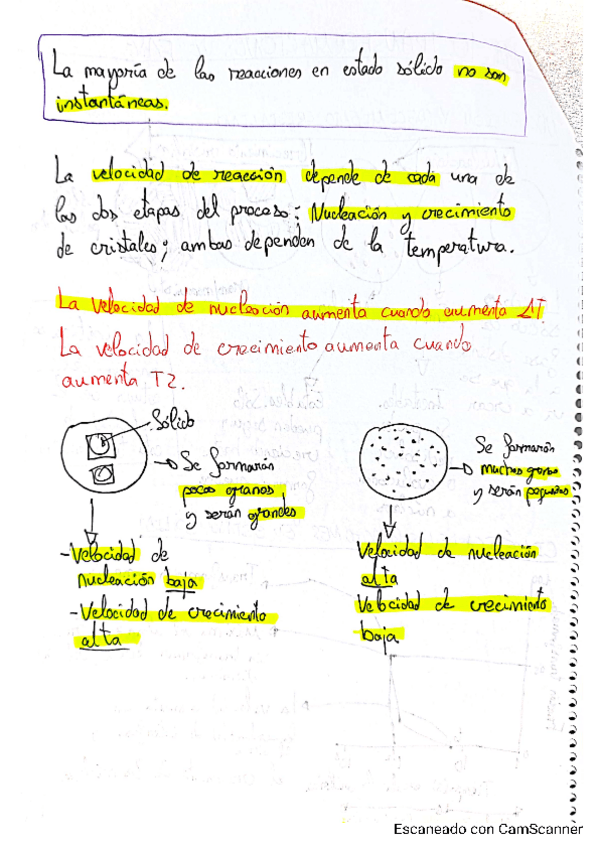 La mayoría de las reacciones en estado sólido no son
instantáneas.
La velocidad de reacción depende de cada una de
las dos etapas del proceso: Nucleación y crecimiento
de cristales; ambas dependen de la temperatura.
La velocidad de nucleación aumenta cuando aumenta ΔT.
La velocidad de crecimiento aumenta cuando
aumenta T2.
Sólido
Se formaran
pocos granos
y serán grandes
Se formarán
muchos granos
y serán pequeños
-Velocidad de
nucleación baja
-Velocidad de crecimiento
alta
Velocidad de nucleación
alta
Velocidad de crecimiento
baja
Escaneado con CamScanner